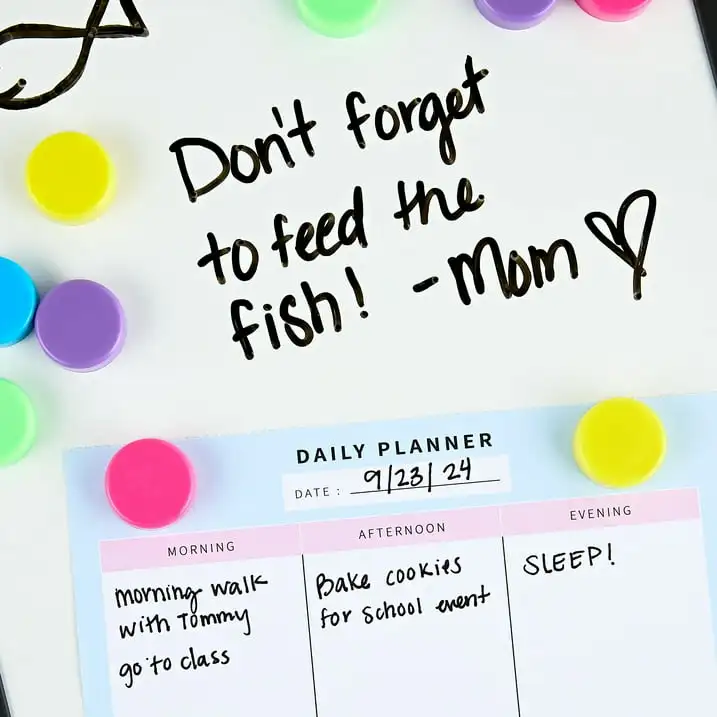 Don't forget
to feed the
fish! -Mom
DAILY PLANNER
DATE : 9/23/24
MORNING
morning walk
with Tommy
go to class
AFTERNOON
Bake cookies
for school event
EVENING
SLEEP!